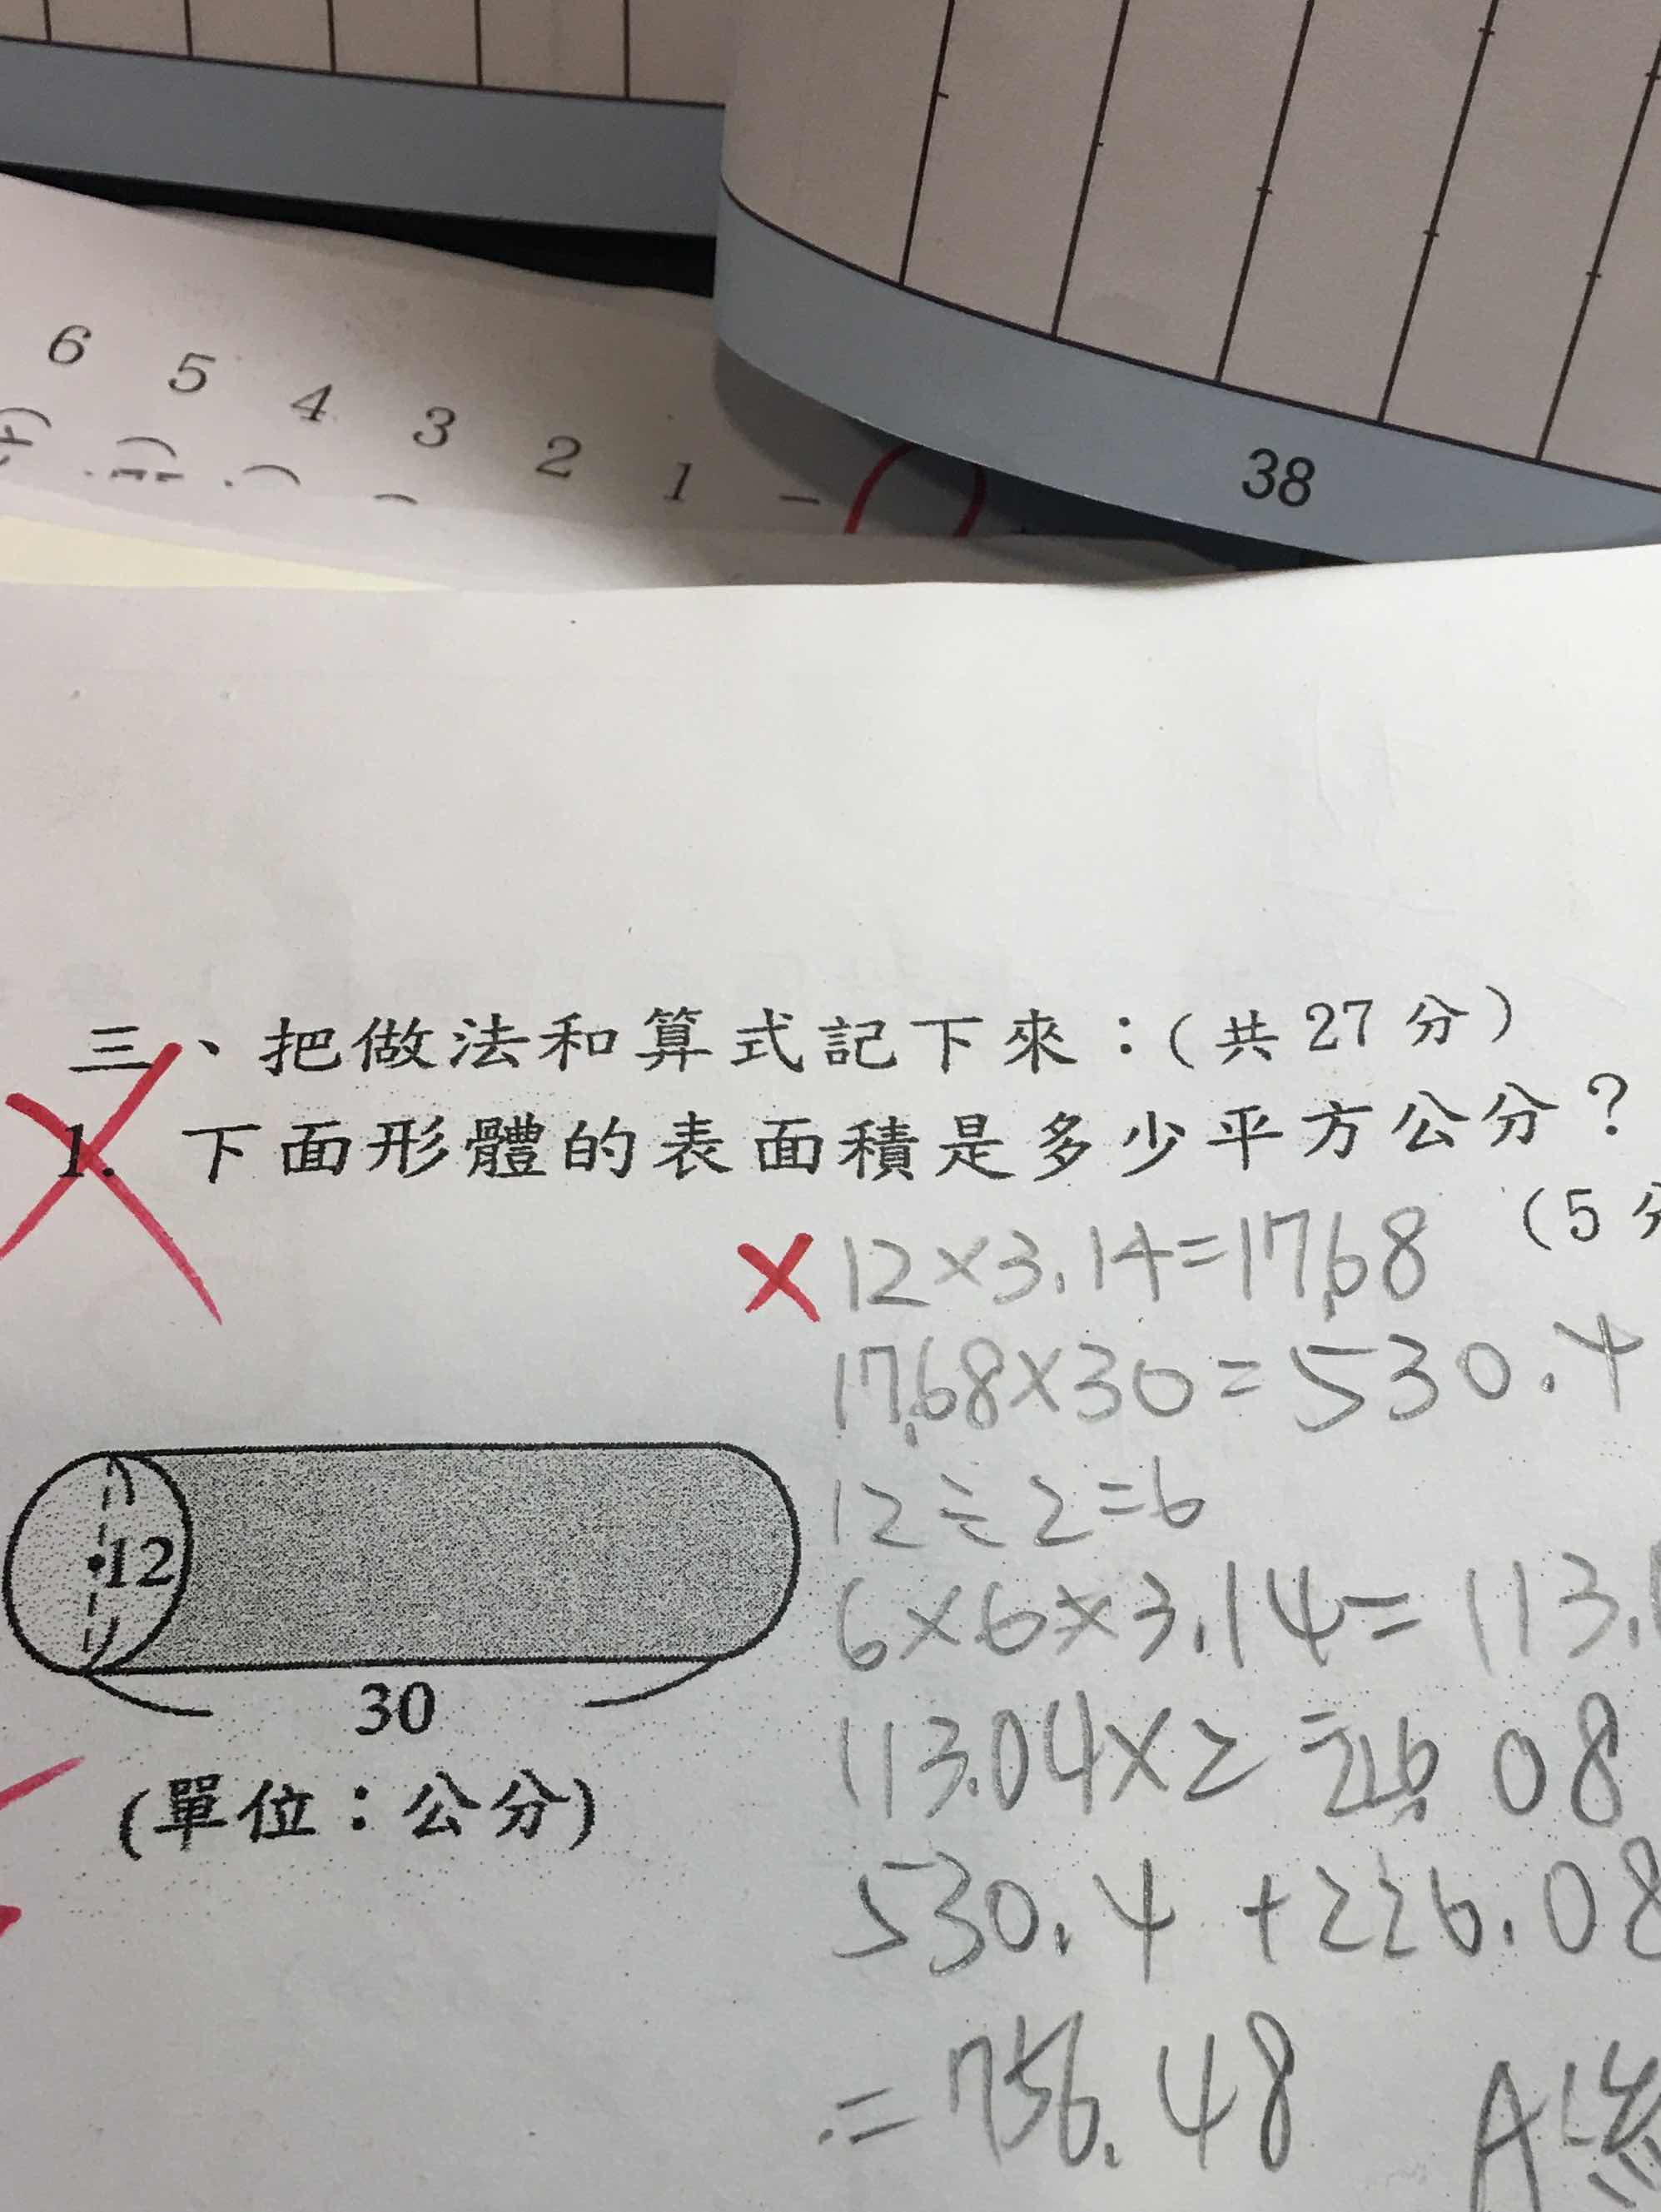 38
6 5 4 3 2 1 一
三、把做法和算式記下來：(共27分)
1. 下面形體的表面積是多少平方公分？
(5
12×3.14=17.68
17.68×30=530.4
12÷2=6
6×6×3.14=113.
113.04×2=226.08
530.4+226.08
=756.48
A
12
30
(單位：公分)